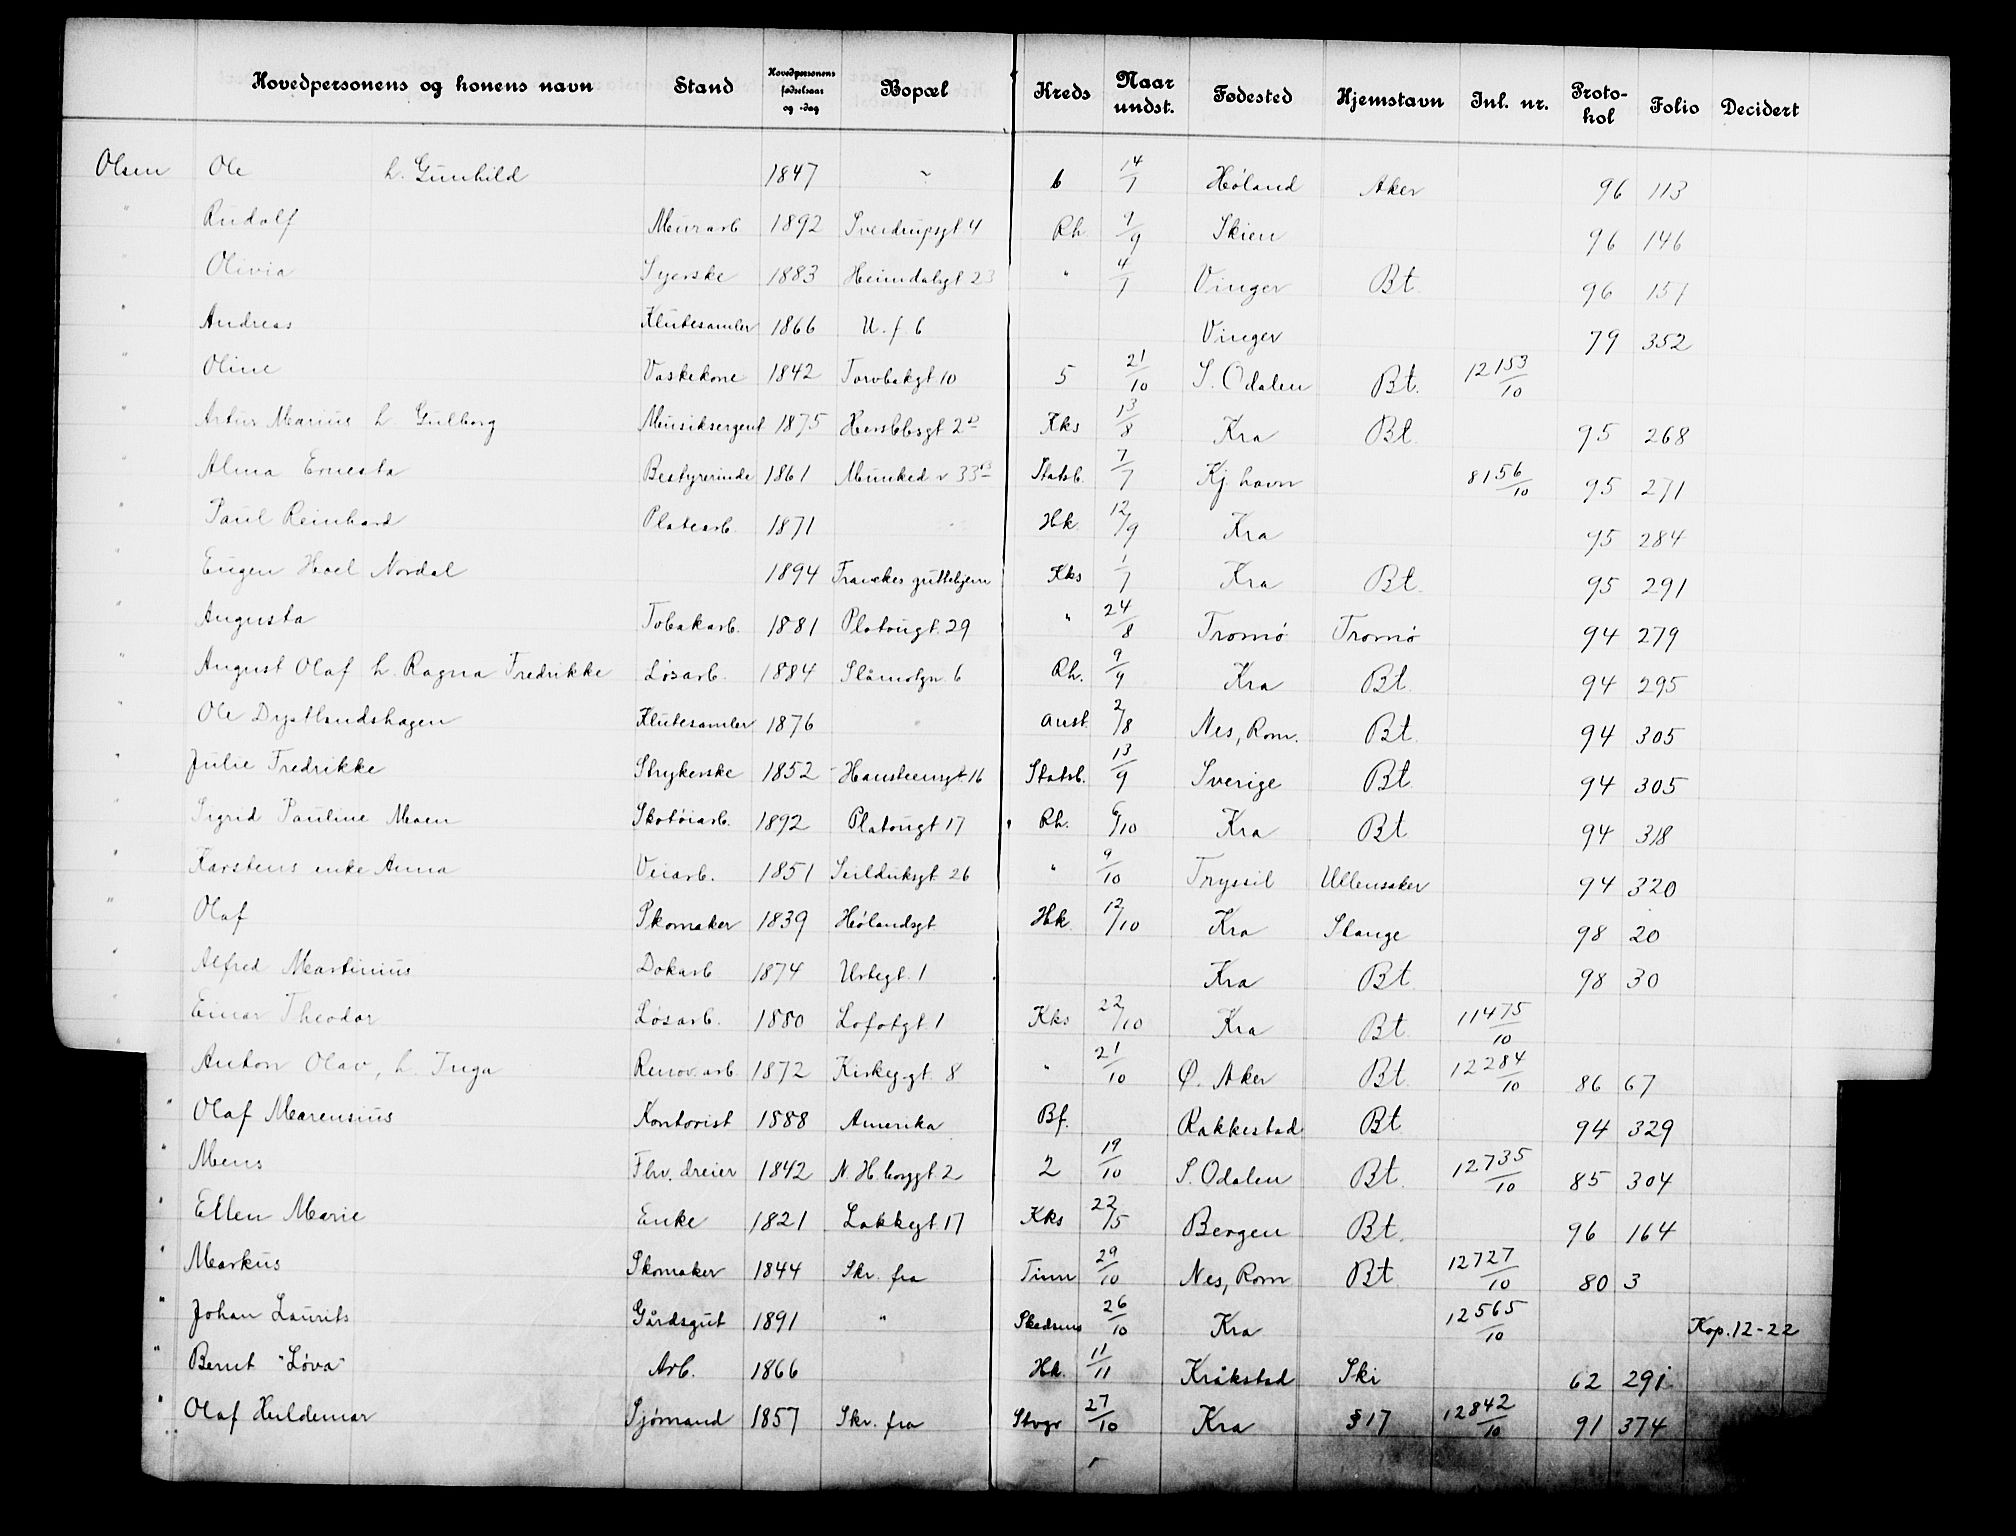 Hovedpersonens og konens navn Stand Hovedpersonens fødselsaar og -dag Bopæl Kreds Naar undst. Fødested Hjemstavn Inl. nr. Proto-kol Folio Decidert
Olsen Ole h. Gunhild 1847 " 6 14/7 Høland Aker 96 113
" Rudolf Murarb 1892 Sverdrupsgt 4 Rh 9/9 Skien 96 146
" Olivia Syerske 1883 Heimdalsgt 23 " 4/7 Vinger Bt. 96 157
" Andreas Klutesamler 1866 U. f. 6 Vinger 79 352
" Oline Vaskekone 1842 Torvbakgt 10 5 21/10 S. Odalen Bt. 12153/10
" Artur Marius h. Gulborg Musiksergent 1875 Herslebsgt 2 Kks 13/8 Kra Bt. 95 268
" Alma Ernesta Bestyrerinde 1861 Munked v 33 Statsb. 7/7 Kj.havn 8156/10 95 271
" Paul Reinhard Platearb. 1871 " Hk 12/9 Kra 95 284
" Eugen Hoel Nordal 1894 Franckes guttehjem Kks 1/7 Kra Bt. 95 291
" Augusta Tobakarb. 1881 Platougt. 29 " 24/8 Tromø Tromø 94 279
" August Olaf h. Ragna Fredrikke Løsarb. 1884 Slåmotgn. 6 Rh. 9/9 Kra Bt. 94 295
" Ole Dystlandshagen Klutesamler 1876 " Aust. 2/8 Nes, Rom. Bt. 94 305
" Julie Fredrikke Strykerske 1852 Hansteensgt. 16 Statsb. 13/9 Sverige Bt 94 305
" Sigrid Pauline Moen Skotøiarb. 1892 Platougt 17 Rh. 6/10 Kra Bt 94 318
" Karstens enke Anna Veiarb. 1851 Seilduksgt. 26 " 9/10 Tryssil Ullensaker 94 320
" Olaf Skomaker 1839 Hølandsgt Hk. 12/10 Kra Stange 98 20
" Alfred Martinius Dokarb 1874 Urtegt. 1 Kra Bt. 98 30
" Einar Theodor Løsarb. 1880 Lofotgt. 1 Kks 22/10 Kra Bt. 11475/10
" Anton Olav, h. Inga Renov.arb 1872 Kirkeg.gt. 8 " 21/10 Ø. Aker Bt. 12284/10 86 67
" Olaf Marensius Kontorist 1888 Amerika Bf. Rakkestad Bt. 94 329
" Mens Fhv. dreier 1842 N. H.borggt 2 2 19/10 S. Odalen Bt. 12735/10 85 304
" Ellen Marie Enke 1821 Lakkegt 17 Kks 22/5 Bergen Bt. 96 164
" Markus Skomaker 1844 Skr. fra Tinn 29/10 Nes, Rom Bt 12727/10 80 3
" Johan Laurits Gårdsgut 1891 " Skedsmo 26/10 Kra 12565/10 Kop. 12-22
" Bernt "Løva" Arb. 1866 Hk. 11/11 Kråkstad Ski 62 291
" Olaf Huldemar Sjømand 1857 Skr. fra Stvgr 27/10 Kra §17 12842/10 91 374